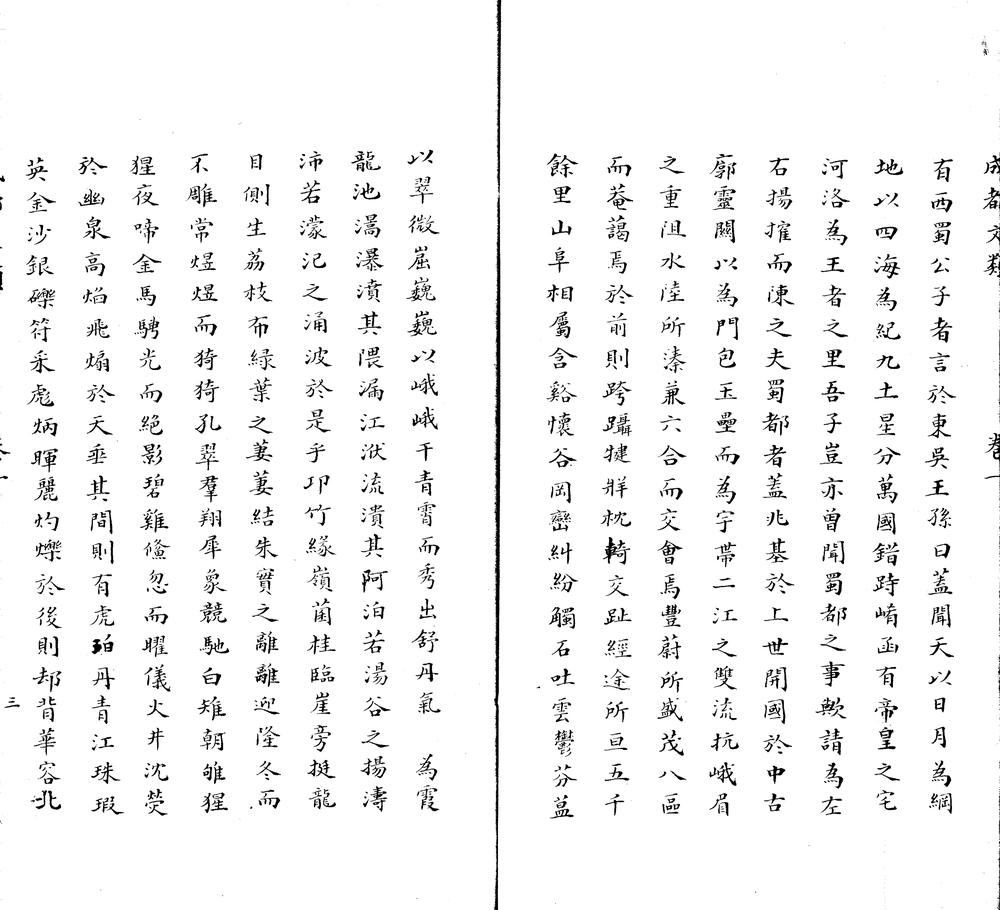 成都文類 卷一
有西蜀公子者言於東吳王孫曰蓋聞天以日月為綱
地以四海為紀九土星分萬國錯跱崤函有帝皇之宅
河洛為王者之里吾子豈亦曾聞蜀都之事歟請為左
右揚搉而陳之夫蜀都者蓋兆基於上世開國於中古
廓靈關以為門包玉壘而為宇帶二江之雙流抗峨眉
之重沮水陸所湊兼六合而交會焉豐蔚所盛茂八區
而菴藹焉於前則跨躡犍牂枕輢交趾經途所亘五千
餘里山阜相屬含谿懷谷岡巒糾紛觸石吐雲鬱芬蒀
以翠微崛巍巍以峨峨干青霄而秀出舒丹氣 為霞
龍池瀥瀑濆其隈漏江洑流潰其阿汩若湯谷之揚濤
沛若濛汜之涌波於是乎邛竹緣嶺菌桂臨崖旁挺龍
目側生荔枝布綠葉之萋萋結朱實之離離迎隆冬而
不雕常煜煜而猗猗孔翠羣翔犀象競馳白雉朝雊猩
猩夜啼金馬騁光而絕影碧雞儵忽而曜儀火井沈熒
於幽泉高焰飛煽於天垂其間則有虎珀丹青江珠瑕
英金沙銀礫符采彪炳暉麗灼爍於後則却背華容北
三